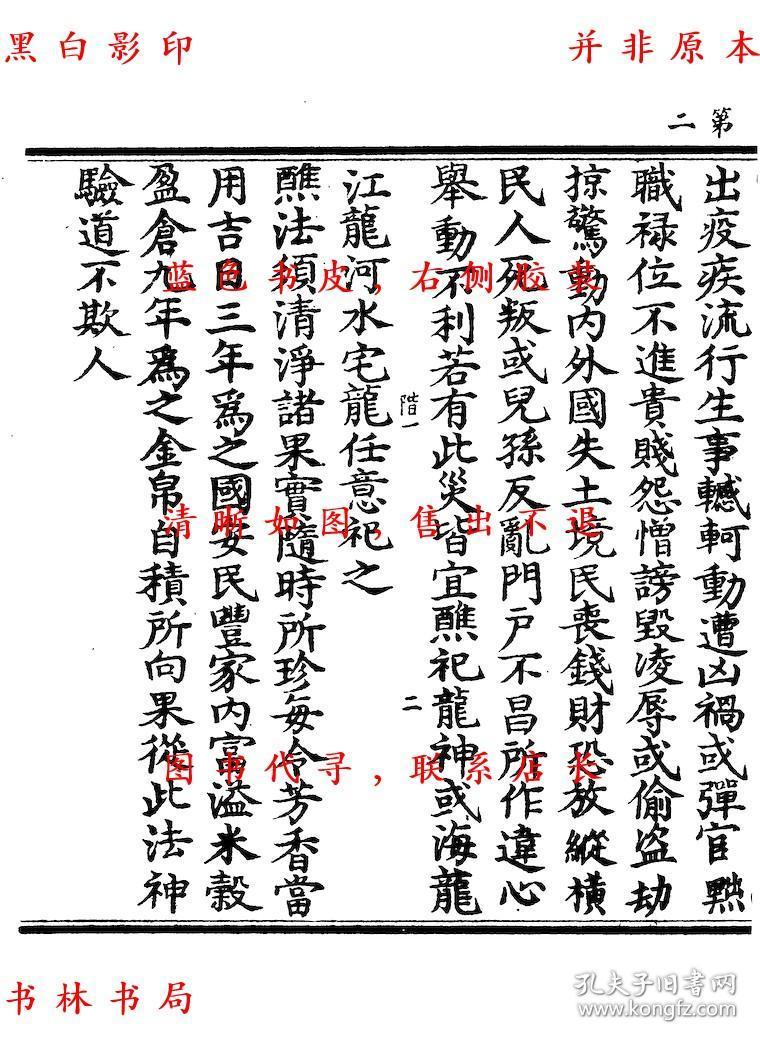 黑白影印
并非原本
第二
出疫疾流行生事轗軻動遭凶禍或彈官黜
職禄位不進貴賤怨憎謗毀凌辱或偷盗劫
掠驚動内外國失土境民喪錢財恐放縱横
民人死叛或兒孫反亂門户不昌所作違心
舉動不利若有此災皆宜醮祀龍神或海龍
階一
二
江龍河水宅龍任意祀之
醮法須清淨諸果實隨時所珍每令芳香當
用吉日三年為之國安民豐家内富溢米穀
盈倉九年為之金帛自積所向果從此法神
驗道不欺人
蓝色书皮,右侧胶装
清晰如图,售出不退
图书代寻,联系店长
书林书局
孔夫子旧书网
www.kongfz.com